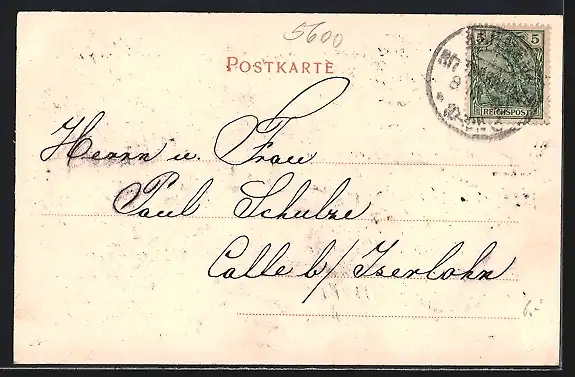 5600
POSTKARTE
5 5
REICHSPOST
Herrn u. Frau
Paul Schulze
Calle b/ Iserlohn
6.-